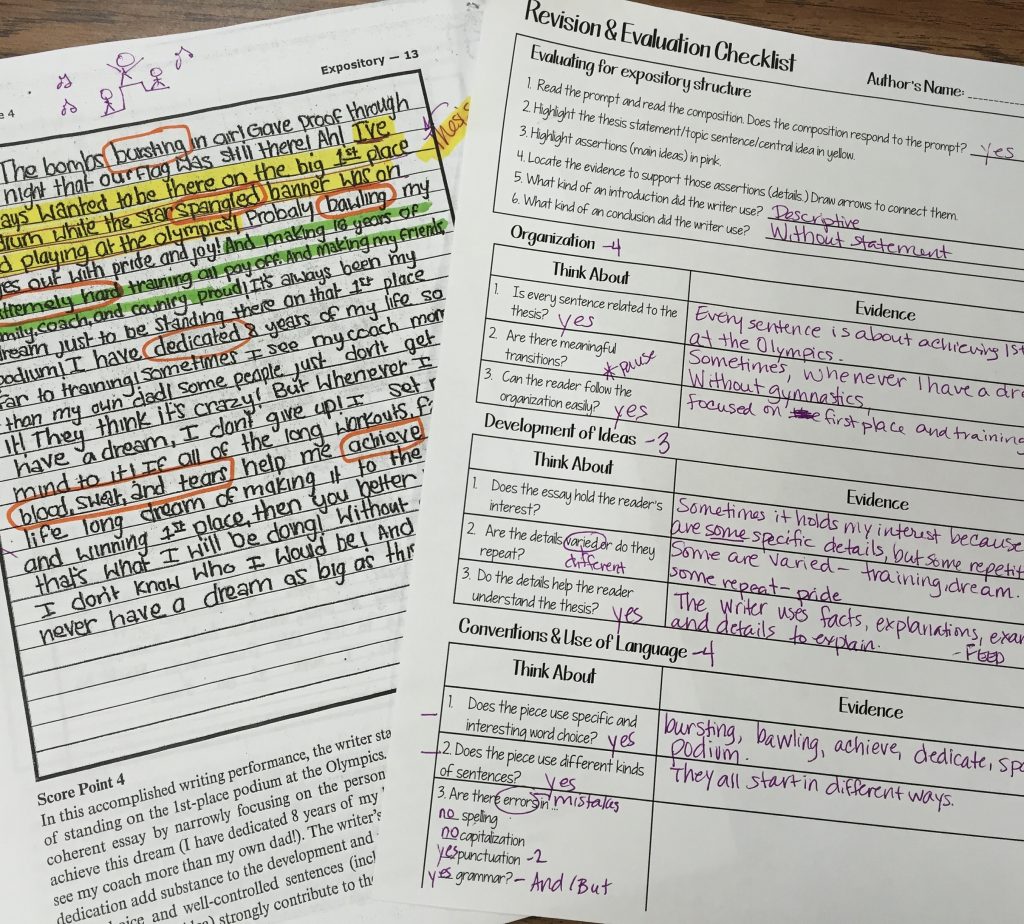 e 4
Expository — 13
The bombs bursting in air! Gave proof through
night that our flag was still there! Ah! I've
ays wanted to be there on the big 1st place
dium while the star spangled banner was on
d playing at the olympics! Probaly bawling my
yes out with pride and joy! And making 16 years of
xtremely hard training all pay off. And making my friends
mily, coach, and country proud! It's always been my
ream just to be standing there on that 1st place
podium! I have dedicated 8 years of my life so
far to training! Sometimes I see my coach mor
than my own dad! some people just don't get
it! They think it's crazy! But whenever I
have a dream, I don't give up! I set
mind to it! If all of the long workouts,
blood, swet, and tears help me achieve
life long dream of making it to the
and winning 1st place, then you better
that's what I will be doing! Without
I don't know who I would be! And
never have a dream as big as this
Score Point 4
In this accomplished writing performance, the writer sta
of standing on the 1st-place podium at the Olympics.
coherent essay by narrowly focusing on the person
achieve this dream (I have dedicated 8 years of my
see my coach more than my own dad!). The writer's
dedication add substance to the development and
oice and well-controlled sentences (incl
strongly contribute to the
Revision & Evaluation Checklist
Author's Name:
Evaluating for expository structure
1. Read the prompt and read the composition. Does the composition respond to the prompt? yes
2. Highlight the thesis statement/topic sentence/central idea in yellow.
3. Highlight assertions (main ideas) in pink.
4. Locate the evidence to support those assertions (details.) Draw arrows to connect them.
5. What kind of an introduction did the writer use? Descriptive
6. What kind of an conclusion did the writer use? Without statement
Organization -4
Think About
Evidence
1. Is every sentence related to the
thesis? yes
Every sentence is about achieving 1st
at the Olympics.
2. Are there meaningful
transitions? *pause
Sometimes, whenever I have a dre
Without gymnastics,
3. Can the reader follow the
organization easily? yes
focused on first place and training
Development of Ideas -3
Think About
Evidence
1. Does the essay hold the reader's
interest?
Sometimes it holds my interest because
are some specific details, but some repetit
2. Are the details varied or do they
repeat? different
Some are varied - training, dream.
some repeat - pride
3. Do the details help the reader
understand the thesis? yes
The writer uses facts, explanations, exa
and details to explain. - FEED
Conventions & Use of Language -4
Think About
Evidence
1. Does the piece use specific and
interesting word choice? yes
bursting, bawling, achieve, dedicate, spa
podium.
2. Does the piece use different kinds
of sentences? yes
They all start in different ways.
3. Are there errors in... mistakes
no spelling
no capitalization
yes punctuation -2
yes grammar? - And/But